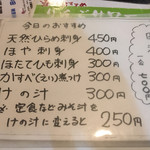 今日のおすすめ
天然ひらめ刺身 450円
ほや刺身 400円
ほたてひも刺身 300円
カすべ(えい)煮つけ 300円
けの汁 300円
定食などとみそ汁を
けの汁に変えると
250円